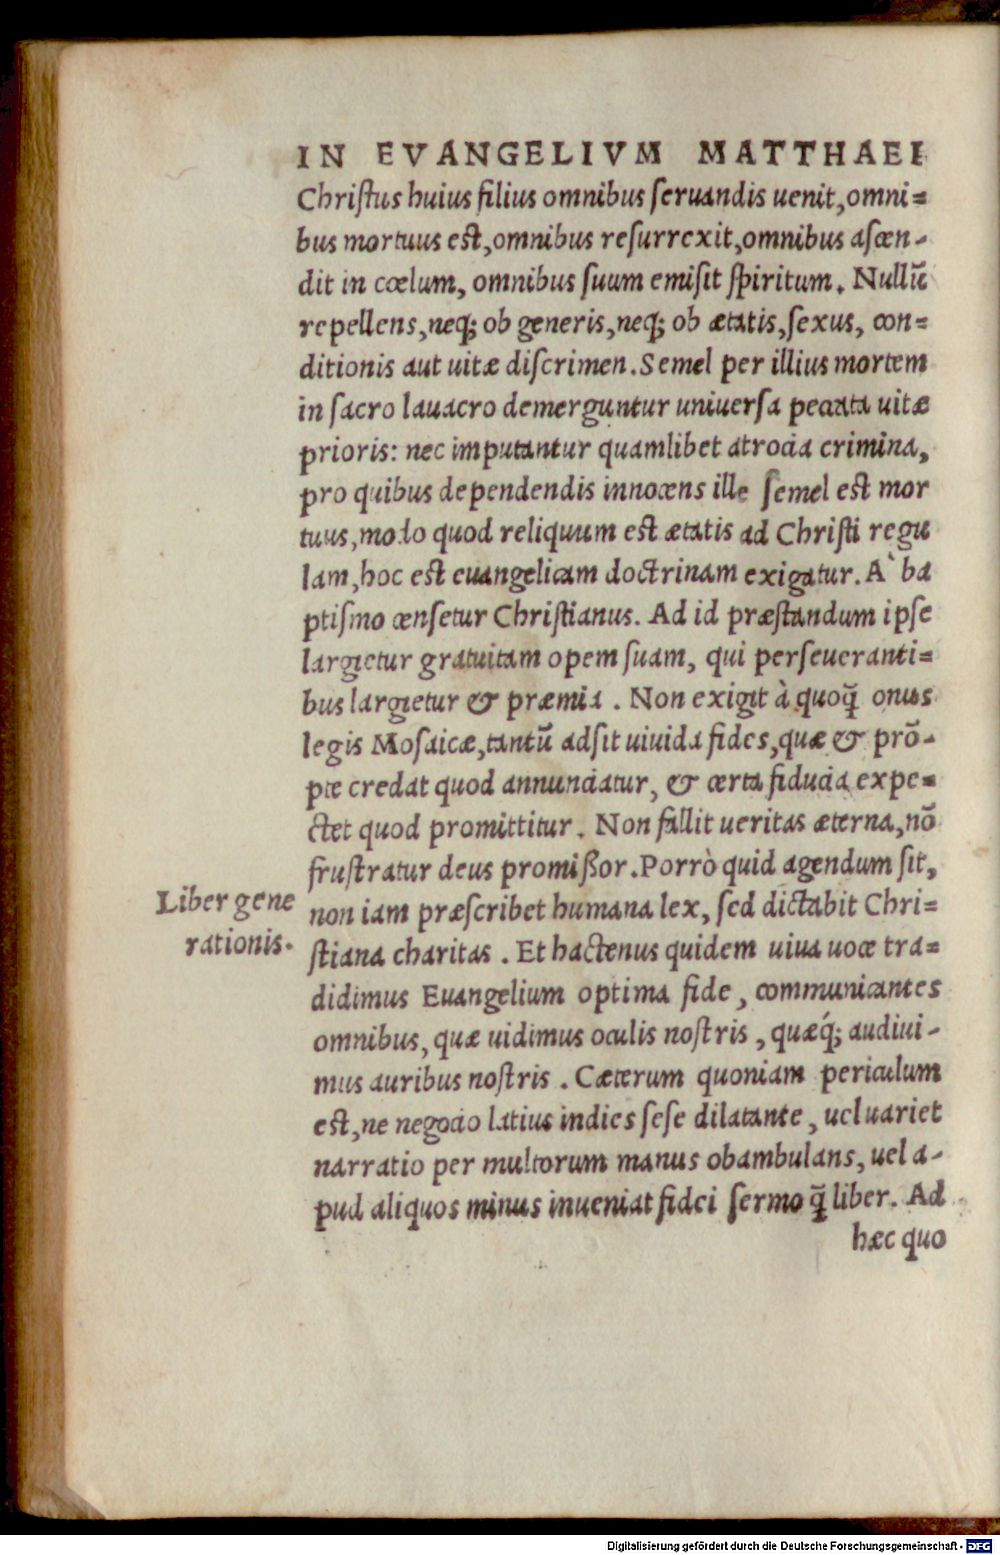 IN EVANGELIVM MATTHAEI
Christus huius filius omnibus seruandis uenit, omni=
bus mortuus est, omnibus resurrexit, omnibus ascen-
dit in cœlum, omnibus suum emisit spiritum. Nullũ
repellens, neq; ob generis, neq; ob ætatis, sexus, con=
ditionis aut uitæ discrimen. Semel per illius mortem
in sacro lauacro demerguntur uniuersa peccata uitæ
prioris: nec imputantur quamlibet atrocia crimina,
pro quibus dependendis innocens ille semel est mor
tuus, modo quod reliquum est ætatis ad Christi regu
lam, hoc est euangelicam doctrinam exigatur. A` ba
ptismo censetur Christianus. Ad id præstandum ipse
largietur gratuitam opem suam, qui perseueranti=
bus largietur & præmia. Non exigit à quoq̃ onus
legis Mosaicæ, tantũ adsit uiuida fides, quæ & prõ-
pte credat quod annunciatur, & certa fiducia expe=
ctet quod promittitur. Non fallit ueritas æterna, nõ
frustratur deus promißor. Porrò quid agendum sit,
Liber gene
rationis.
non iam præscribet humana lex, sed dictabit Chri=
stiana charitas. Et hactenus quidem uiua uoce tra=
didimus Euangelium optima fide, communicantes
omnibus, quæ uidimus oculis nostris, quæq́; audiui-
mus auribus nostris. Cæterum quoniam periculum
est, ne negocio latius indies sese dilatante, uel uariet
narratio per multorum manus obambulans, uel a-
pud aliquos minus inueniat fidei sermo q̃ liber. Ad
hæc quo
Digitalisierung gefördert durch die Deutsche Forschungsgemeinschaft - DFG